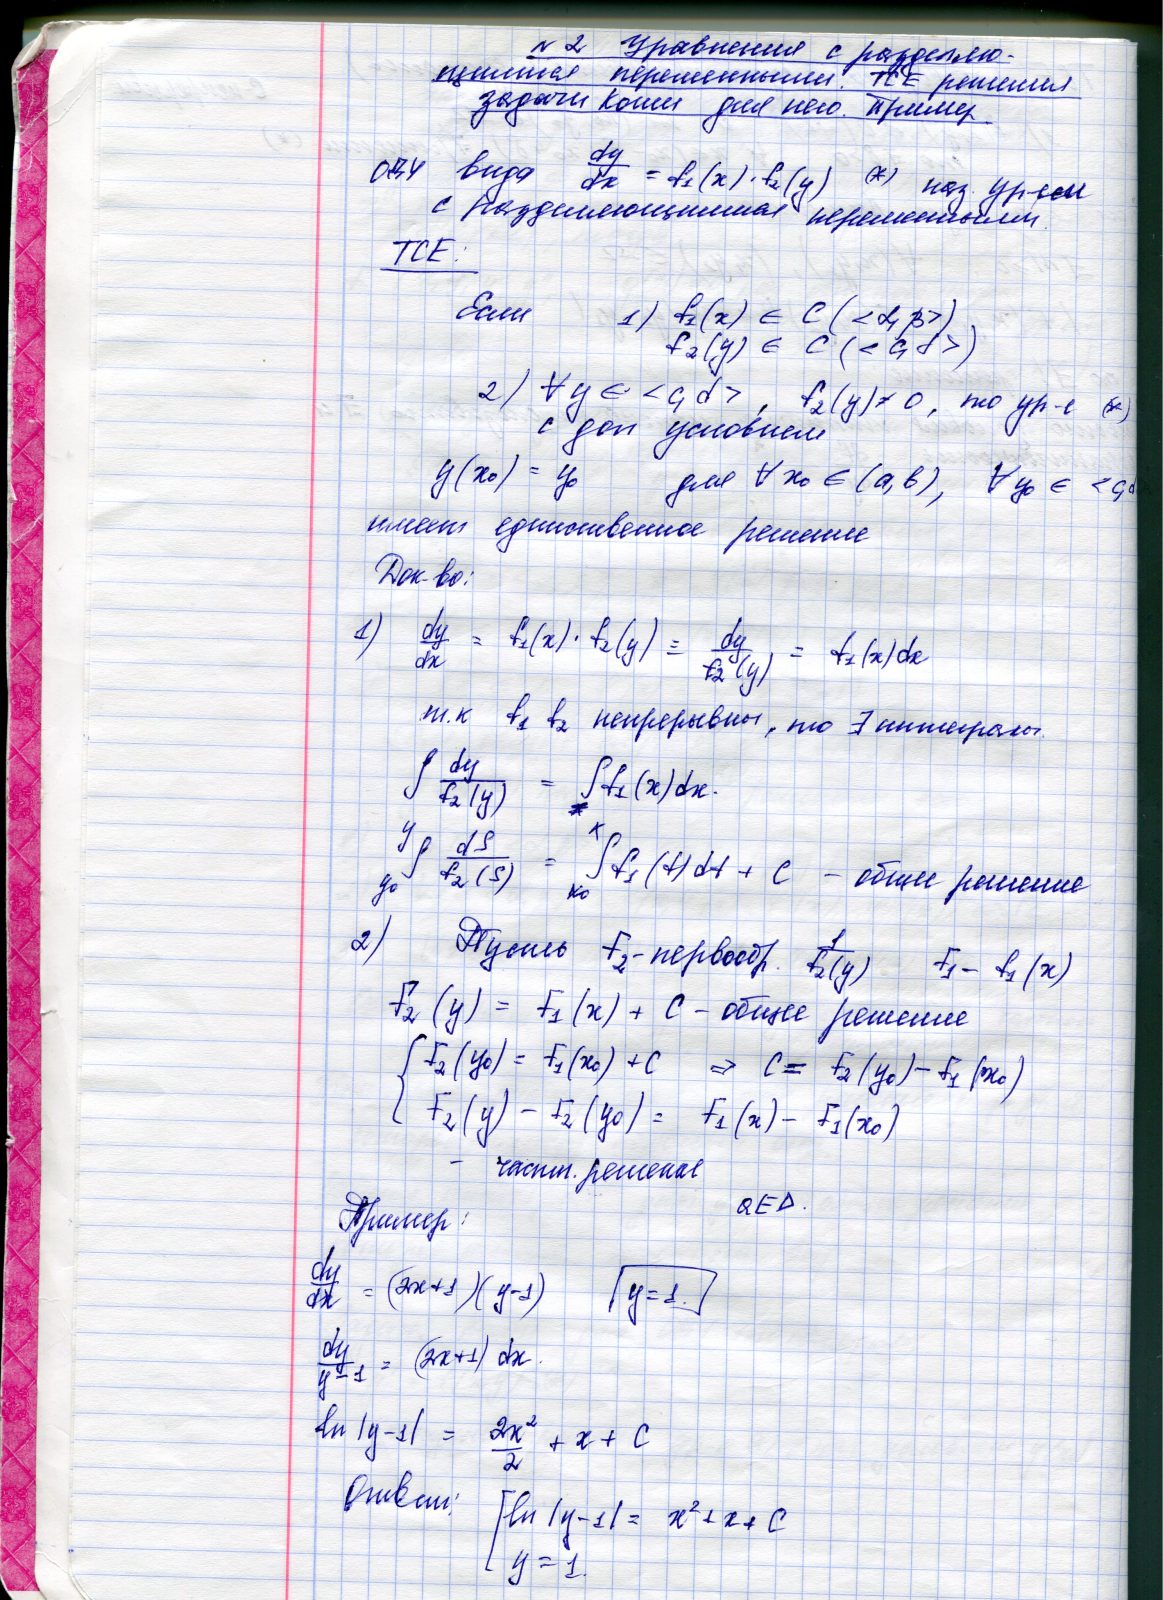 №2 Уравнения с разделяю-
щимися переменными. ТСЕ решения
задачи Коши для него. Пример
ОДУ вида dy/dx = f₁(x)·f₂(y) (*) наз. ур-ем
с разделяющимися переменными.
ТСЕ:
Если 1) f₁(x) ∈ C(<α, β>)
f₂(y) ∈ C(<c, d>)
2) ∀y ∈ <c, d>, f₂(y) ≠ 0, то ур-е (*)
с доп условием
y(x₀) = y₀ для ∀x₀ ∈ (a, b), ∀y₀ ∈ <c, d>
имеет единственное решение
Док-во:
1) dy/dx = f₁(x)·f₂(y) ≡ dy/f₂(y) = f₁(x)dx
т.к f₁ f₂ непрерывны, то ∃ интегралы.
∫ dy/f₂(y) = ∫ f₁(x)dx.
∫_{y₀}^{y} dS/f₂(S) = ∫_{x₀}^{x} f₁(t)dt + C – общее решение
2) Пусть F₂ - первообр. 1/f₂(y) F₁ – f₁(x)
F₂(y) = F₁(x) + C – общее решение
{ F₂(y₀) = F₁(x₀) + C ⇒ C = F₂(y₀) – F₁(x₀)
F₂(y) – F₂(y₀) = F₁(x) – F₁(x₀)
– частн. решение
QED.
Пример:
dy/dx = (2x+1)(y-1) y=1.
dy/y-1 = (2x+1)dx.
ln|y-1| = 2x²/2 + x + C
Ответ: [ ln|y-1| = x²+x+C
y = 1.